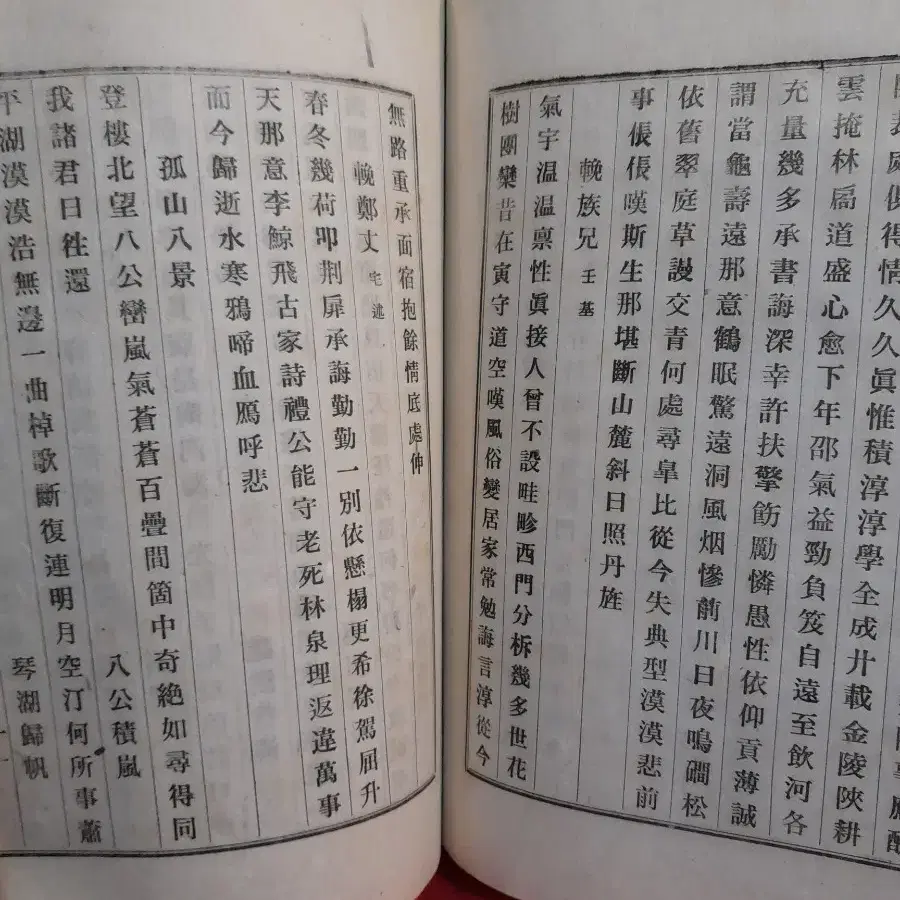 處俱得情久久眞惟積淳淳學全成廾載金陵陝耕
雲掩林扃道盛心愈下年邵氣益勁負笈自遠至飮河各
充量幾多承書誨深幸許扶擎飭勵憐愚性依仰貢薄誠
謂當龜壽遠那意鶴眠驚遠洞風烟慘前川日夜鳴磵松
依舊翠庭草謾交青何處尋皐比從今失典型漠漠悲前
事倀倀嘆斯生那堪斷山麓斜日照丹旌
輓族兄 壬基
氣宇温温禀性眞接人曾不設畦畛西門分柝幾多世花
樹團欒昔在寅守道空嘆風俗變居家常勉誨言淳從今
無路重承面宿抱餘情底處伸
輓鄭丈 宅逑
春冬幾荷叩荆扉承誨勤勤一別依懸榻更希徐駕屈升
天那意李鯨飛古家詩禮公能守老死林泉理返違萬事
而今歸逝水寒鴉啼血鴈呼悲
孤山八景
登樓北望八公巒嵐氣蒼蒼百疊間箇中奇絶如尋得同
我諸君日徃還 八公積嵐
平湖漠漠浩無邊一曲棹歌斷復連明月空汀何所事簫
琴湖歸帆